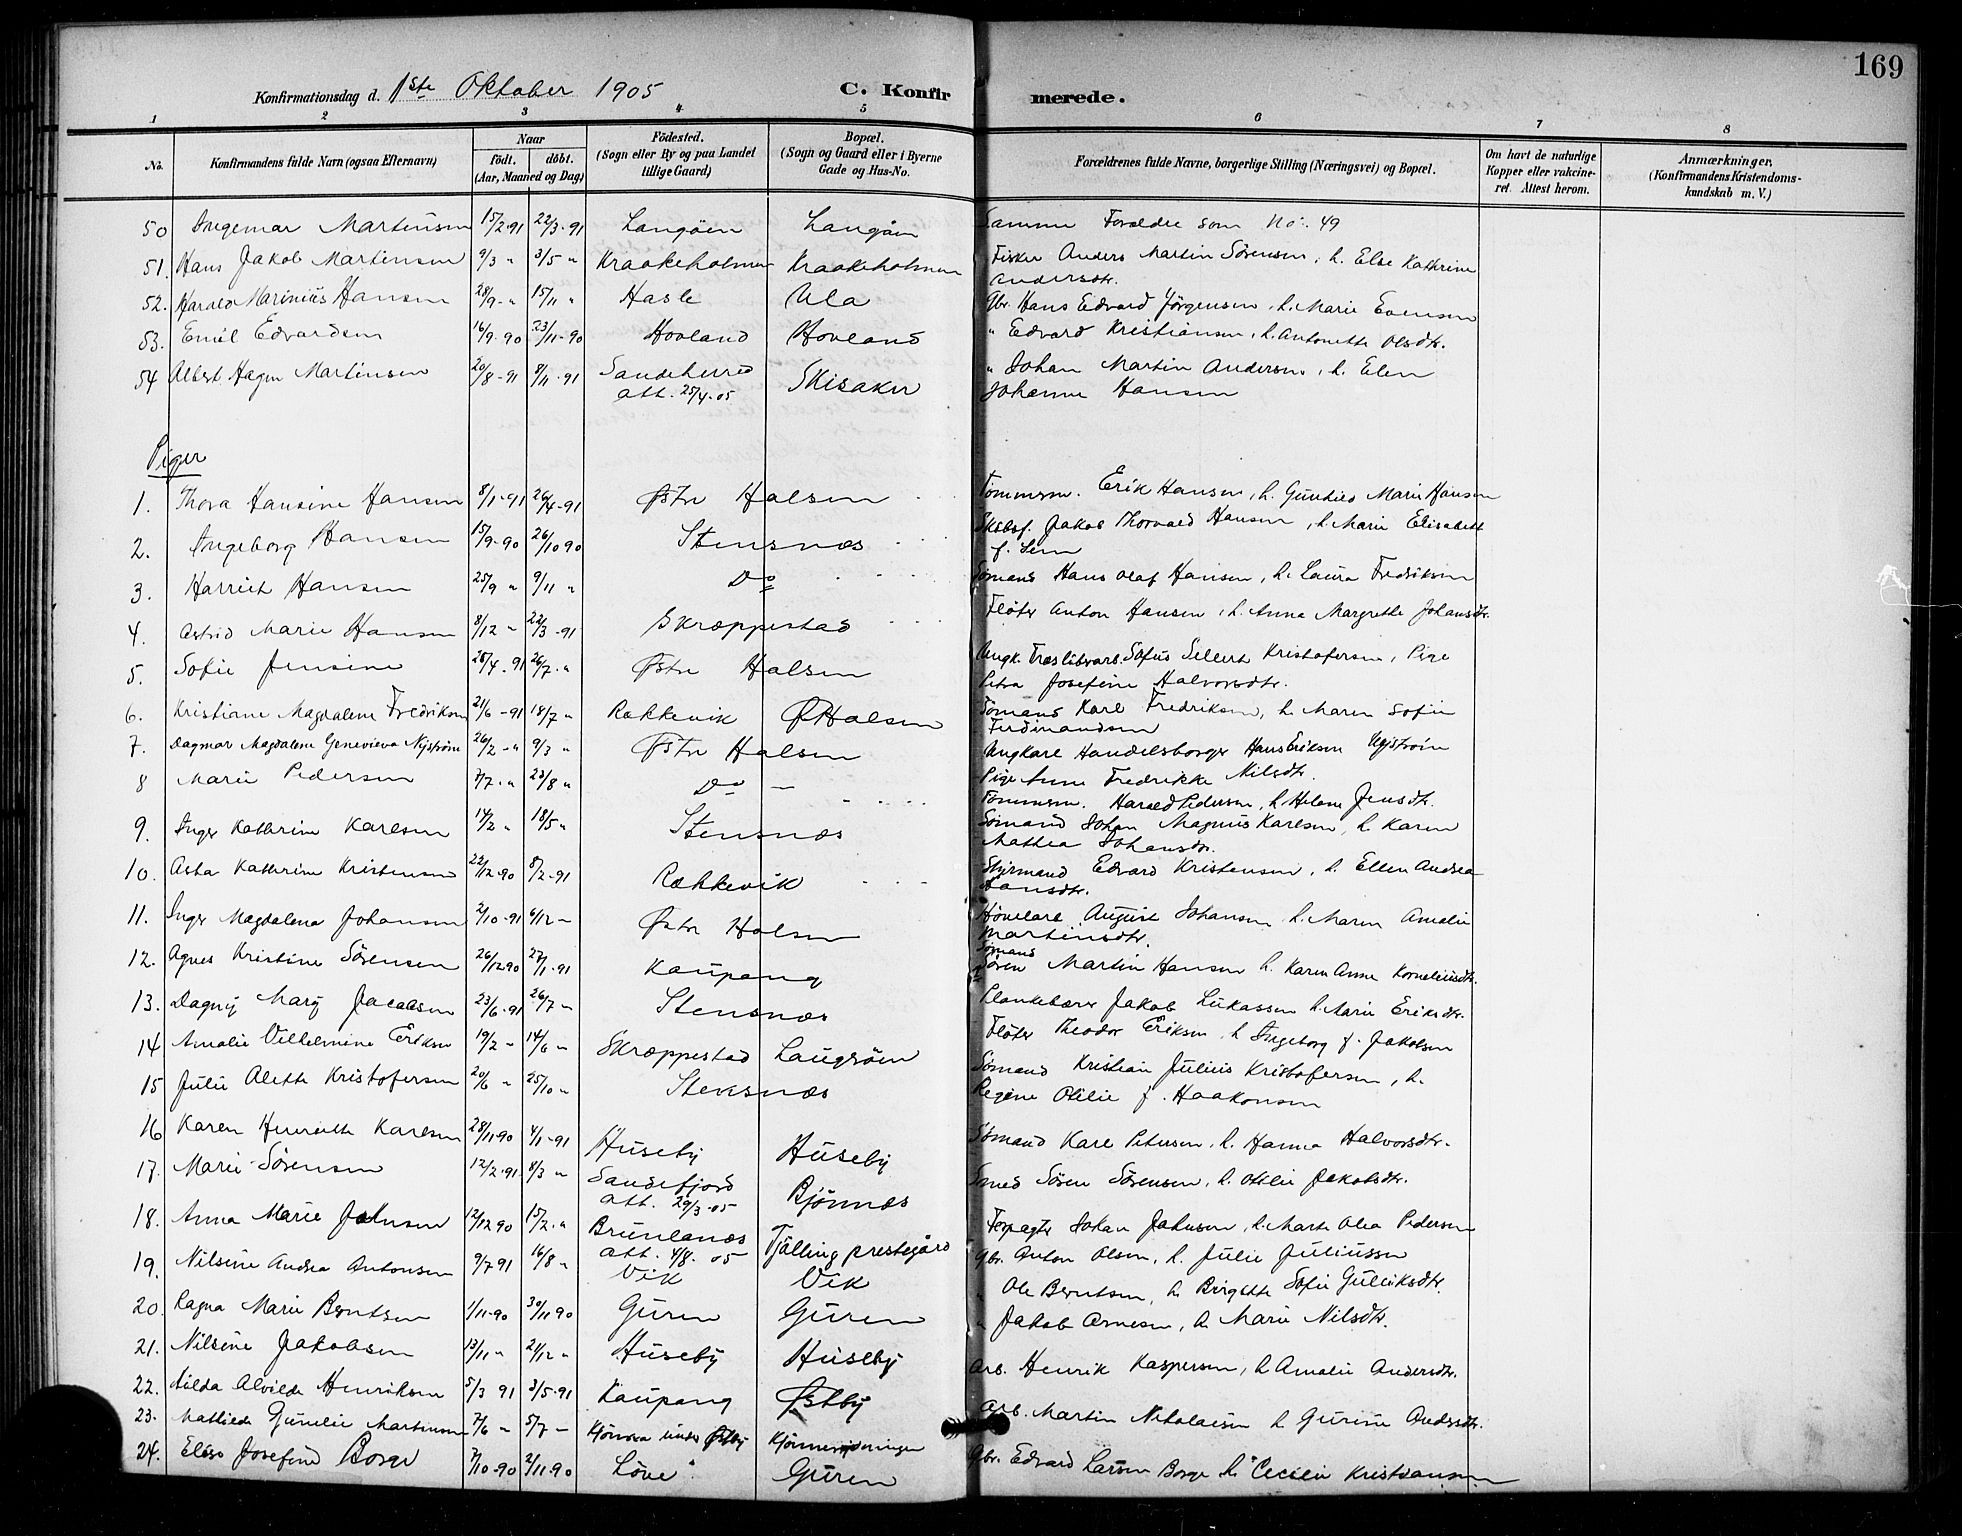 169
Konfirmationsdag d. 1ste Oktober 1905 C. Konfirmerede.
1 2 3 4 5 6 7 8
No. Konfirmandens fulde Navn (ogsaa Efternavn) Naar födt. döbt. (Aar, Maaned og Dag) Födested. (Sogn eller By og paa Landet tillige Gaard) Bopæl. (Sogn og Gaard eller i Byerne Gade og Hus-No. Forældrenes fulde Navne, borgerlige Stilling (Næringsvei) og Bopæl. Om havt de naturlige Kopper eller vakcineret. Attest herom. Anmærkninger, (Konfirmandens Kristendomskundskab m. V.)
50 Ingemar Martinsen 15/2-91 22/3-91 Langöen Langöen Samme Forældre som No. 49
51. Hans Jakob Martinsen 9/3 " 3/5 " Kraakeholmen Kraakeholmen Fisker Anders Martin Sörensen, h. Else Kathrine
Andersdtr.
52. Harald Marinius Hansen 28/9 - " 15/11 " Hasle Ula Gbr. Hans Edvard Jörgensen, h. Marie Evensen
53. Emil Edvardsen 16/9-90 23/11-90 Hovland Hovland " Edvard Kristiansen, h. Antonette Olsdtr.
54 Albert Hagen Martinsen 20/8-91 8/11-91 Sandeherred Skisaker " Johan Martin Andersen, h. Elen
att. 25/4-05 Johanne Hansen
Piger
1. Thora Hansine Hansen 8/1-91 26/4-91 Østre Halsen Tömmerm. Erik Hansen, h. Gunhild Marie Hansen
2. Ingeborg Hansen 15/9-90 26/10 90 Stensnæs Jakob Thorvald Hansen, h. Marie Elisabeth
f. Lem
3. Harriet Hansen 25/9 " 9/11 " Do Sömand Hans Olaf Hansen, h. Laura Fredriksen
4. Astrid Marie Hansen 8/12 - 22/3-91 Skræppestad Flöter Anton Hansen, h. Anna Margrethe Johansdtr.
5. Sofie Jensine 28/4-91 26/7 - " Østre Halsen Ungk. Sofus Selert Kristofersen, Pige
Petra Josefine Halvorsdtr.
6. Kristiane Magdalene Fredriksen 21/6-91 18/7 " Rækkevik Ø Halsen Sömand Karl Fredriksen, h. Maren Sofie
Ferdinandsen
7. Dagmar Magdalene Genevieva Nyström 26/2 - " 9/3 " Østre Halsen Ungkarl Handelsborger Hans Eriksen Nyström
Pige Anne Fredrikke Nilsdtr.
8 Marie Pedersen 7/7 - " 23/8 " Do - Tömmerm. Harald Pedersen, h. Helene Jensdtr.
9. Inger Kathrine Karlsen 14/2 " 18/5 " Stensnæs Sömand Johan Magnus Karlsen, h. Karen
Mathea Johansdtr.
10. Asta Kathrine Kristensen 22/12-90 8/2-91 Rækkevik Styrmand Edvard Kristensen, h. Ellen Andrea
Hansdtr.
11. Inger Magdalena Johansen 2/10-91 6/12 - Østre Halsen August Johansen h. Maren Amalie
Martinsdtr.
12. Agnes Kristine Sörensen 26/12 90 27/1-91 Kaupang Sömand
Sören Martin Hansen h. Karen Anne Korneliusdtr.
13. Dagny Mary Jacobsen 23/6-91 26/7 - Stensnæs Plankebærer Jakob Lukassen h. Marie Eriksdtr.
14 Amalie Vilhelmine Eriksen 19/2 - 14/6 - Skræppestad Flöter Theodor Eriksen, h Ingeborg f. Jakobsen
15 Julie Alette Kristofersen 20/6 " 25/10 " Stensnæs Sömand Kristian Julius Kristofersen, h.
Regine Otilie f. Haakonsen
16 Karen Henriette Karlsen 28/11 90 4/1-91 Huseby Huseby Sömand Karl Petersen, h. Hanna Halvorsdtr.
17. Marie Sörensen 12/2-91 8/3 " Sandefjord Bjönnes Smed Sören Sörensen, h. Otilie Jakobsdtr.
att. 29/3-05
18. Anna Marie Johnsen 12/12 90 15/2 " Brunlanæs Tjölling prestegård Forpagter Johan Johnsen, h. Marte Olea Pedersen
att. 4/8. 05
19. Nilsine Andrea Antonsen 9/7 91 16/8 " Vik Vik Gbr. Anton Olsen, h. Julie Juliussen
20. Ragna Marie Berntsen 1/11-90 30/11 90 Guren Guren " Ole Berntsen, h Birgitte Sofie Gulliksdtr.
21. Nilsine Jakobsen 13/11 " 21/12 " Huseby Huseby " Jakob Arnesen, h Marie Nilsdtr.
22. Hilda Alvilde Henriksen 5/3 91 3/5-91 Kaupang Østby Arb. Henrik Kaspersen, h Amalie Andersdtr.
23. Mathilde Gunelie Martinsen 7/6 - 5/7 - under Østby Arb. Martin Nikolaisen h Gurine Andersdtr.
24. Elise Josefine Borge 7/10-90 2/11-90 Löve Guren Gbr. Edvard Larsen Borge h. Cecilie Kristiansen